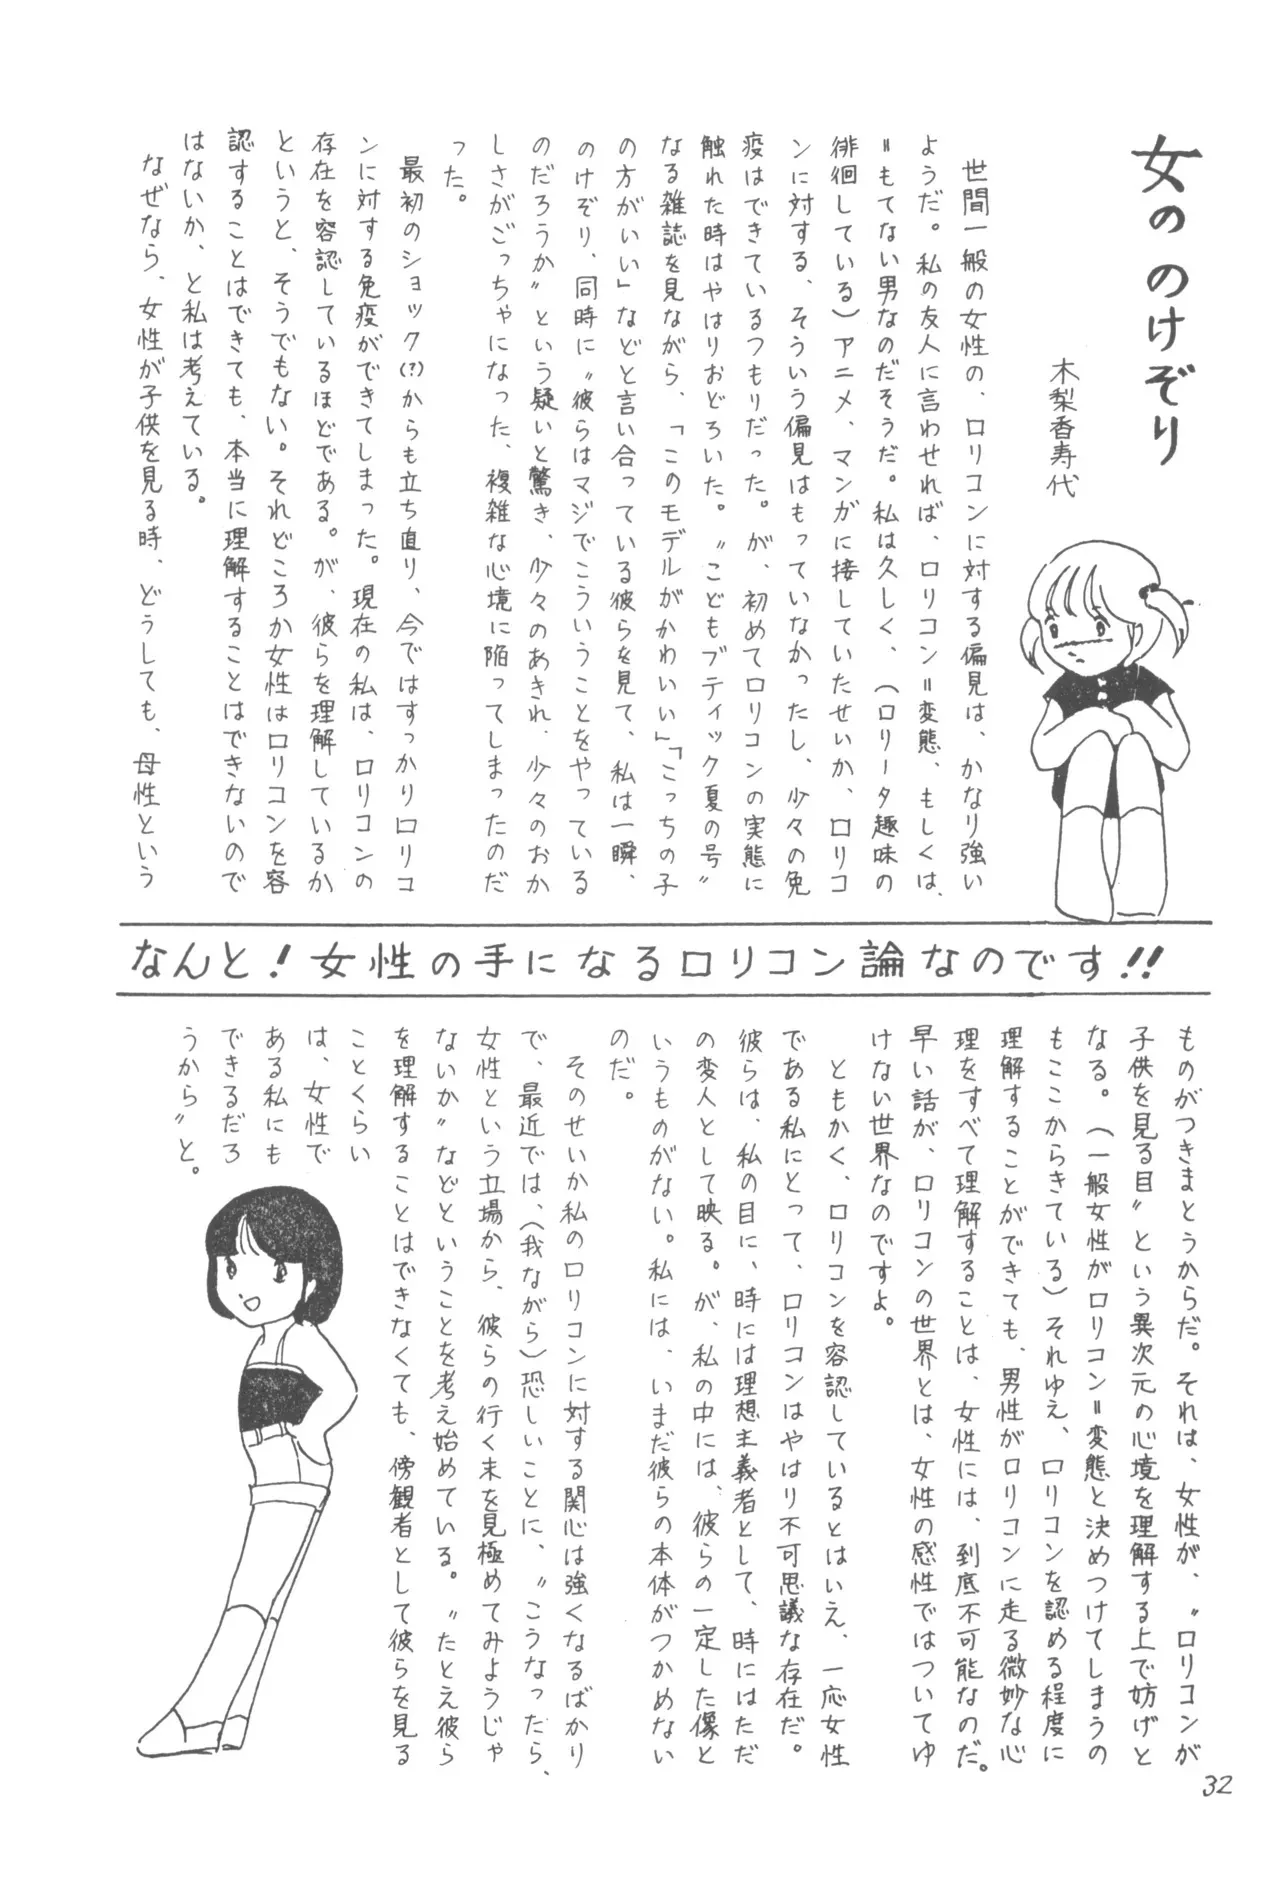 女の のけぞり
木梨香寿代
世間一般の女性の、ロリコンに対する偏見は、かなり強い
ようだ。私の友人に言わせれば、ロリコン=変態、もしくは、
=もてない男なのだそうだ。私は久しく、(ロリータ趣味の
徘徊している)アニメ、マンガに接していたせいか、ロリコ
ンに対する、そういう偏見はもっていなかったし、少々の免
疫はできているつもりだった。が、初めてロリコンの実態に
触れた時はやはりおどろいた。〝こどもブティック夏の号〟
なる雑誌を見ながら、「このモデルがかわいい」「こっちの子
の方がいい」などと言い合っている彼らを見て、私は一瞬、
のけぞり、同時に〝彼らはマジでこういうことをやっている
のだろうか〟という疑いと驚き、少々のあきれ、少々のおか
しさがごっちゃになった、複雑な心境に陥ってしまったのだ
った。
最初のショック(?)からも立ち直り、今ではすっかりロリコ
ンに対する免疫ができてしまった。現在の私は、ロリコンの
存在を容認しているほどである。が、彼らを理解しているか
というと、そうでもない。それどころか女性はロリコンを容
認することはできても、本当に理解することはできないので
はないか、と私は考えている。
なぜなら、女性が子供を見る時、どうしても、母性という
なんと!女性の手になるロリコン論なのです!!
ものがつきまとうからだ。それは、女性が、〝ロリコンが
子供を見る目〟という異次元の心境を理解する上で妨げと
なる。(一般女性がロリコン=変態と決めつけてしまうの
もここからきている)それゆえ、ロリコンを認める程度に
理解することができても、男性がロリコンに走る微妙な心
理をすべて理解することは、女性には、到底不可能なのだ。
早い話が、ロリコンの世界とは、女性の感性ではついてゆ
けない世界なのですよ。
ともかく、ロリコンを容認しているとはいえ、一応女性
である私にとって、ロリコンはやはり不可思議な存在だ。
彼らは、私の目に、時には理想主義者として、時にはただ
の変人として映る。が、私の中には、彼らの一定した像と
いうものがない。私には、いまだ彼らの本体がつかめない
のだ。
そのせいか私のロリコンに対する関心は強くなるばかり
で、最近では、(我ながら)恐しいことに、〝こうなったら、
女性という立場から、彼らの行く末を見極めてみようじゃ
ないか〟などということを考え始めている。〝たとえ彼ら
を理解することはできなくても、傍観者として彼らを見る
ことくらい
は、女性で
ある私にも
できるだろ
うから〟と。
32